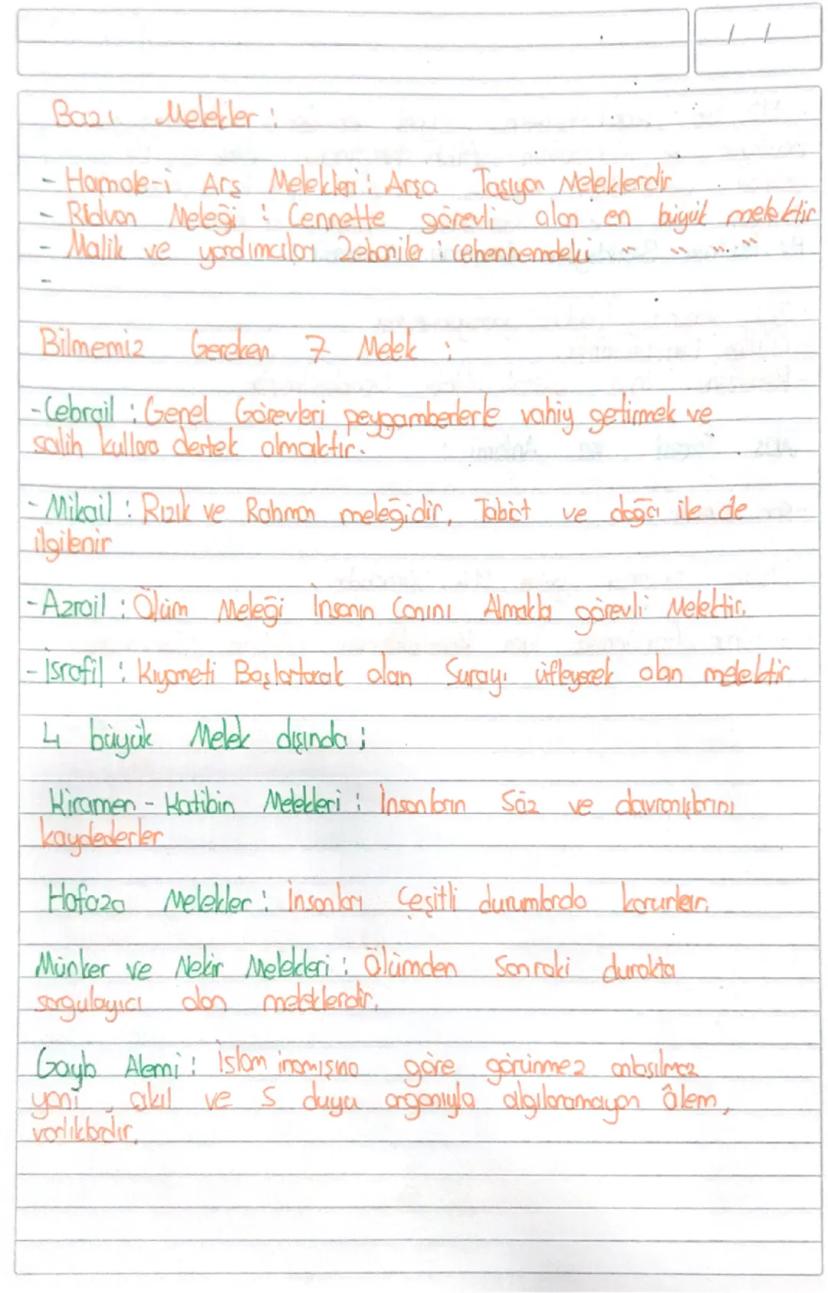 / /
Bazı Melekler :
- Hamale-i Arş Melekleri : Arşa Taşıyan Meleklerdir
- Rıdvan Meleği : Cennette görevli olan en büyük melektir
- Malik ve yardımcıları Zebaniler : cehennemdeki " " " "
-
Bilmemiz Gereken 7 Melek :
- Cebrail : Genel Görevleri peygamberlerle vahiy getirmek ve
salih kullara destek olmaktır.
- Mikail : Rızık ve Rahman meleğidir, Tabiat ve doğa ile de
ilgilenir
- Azrail : Ölüm Meleği İnsanın Canını Almakla görevli Melektir.
- İsrafil : Kıyameti Başlartacak olan Surayı üfleyecek olan melektir
4 büyük Melek dışında ;
Kiramen - Katibin Melekleri : İnsanların Söz ve davranışlarını
kaydederler
Hafaza Melekler : İnsanları Çeşitli durumlarda korurlar.
Münker ve Nekir Melekleri : Ölümden Sonraki durakta
sorgulayıcı olan meleklerdir.
Gayb Alemi : İslam inanışına göre görünmez anlaşılmaz
yani , akıl ve 5 duyu organıyla algılanamayan âlem,
varlıklardır.